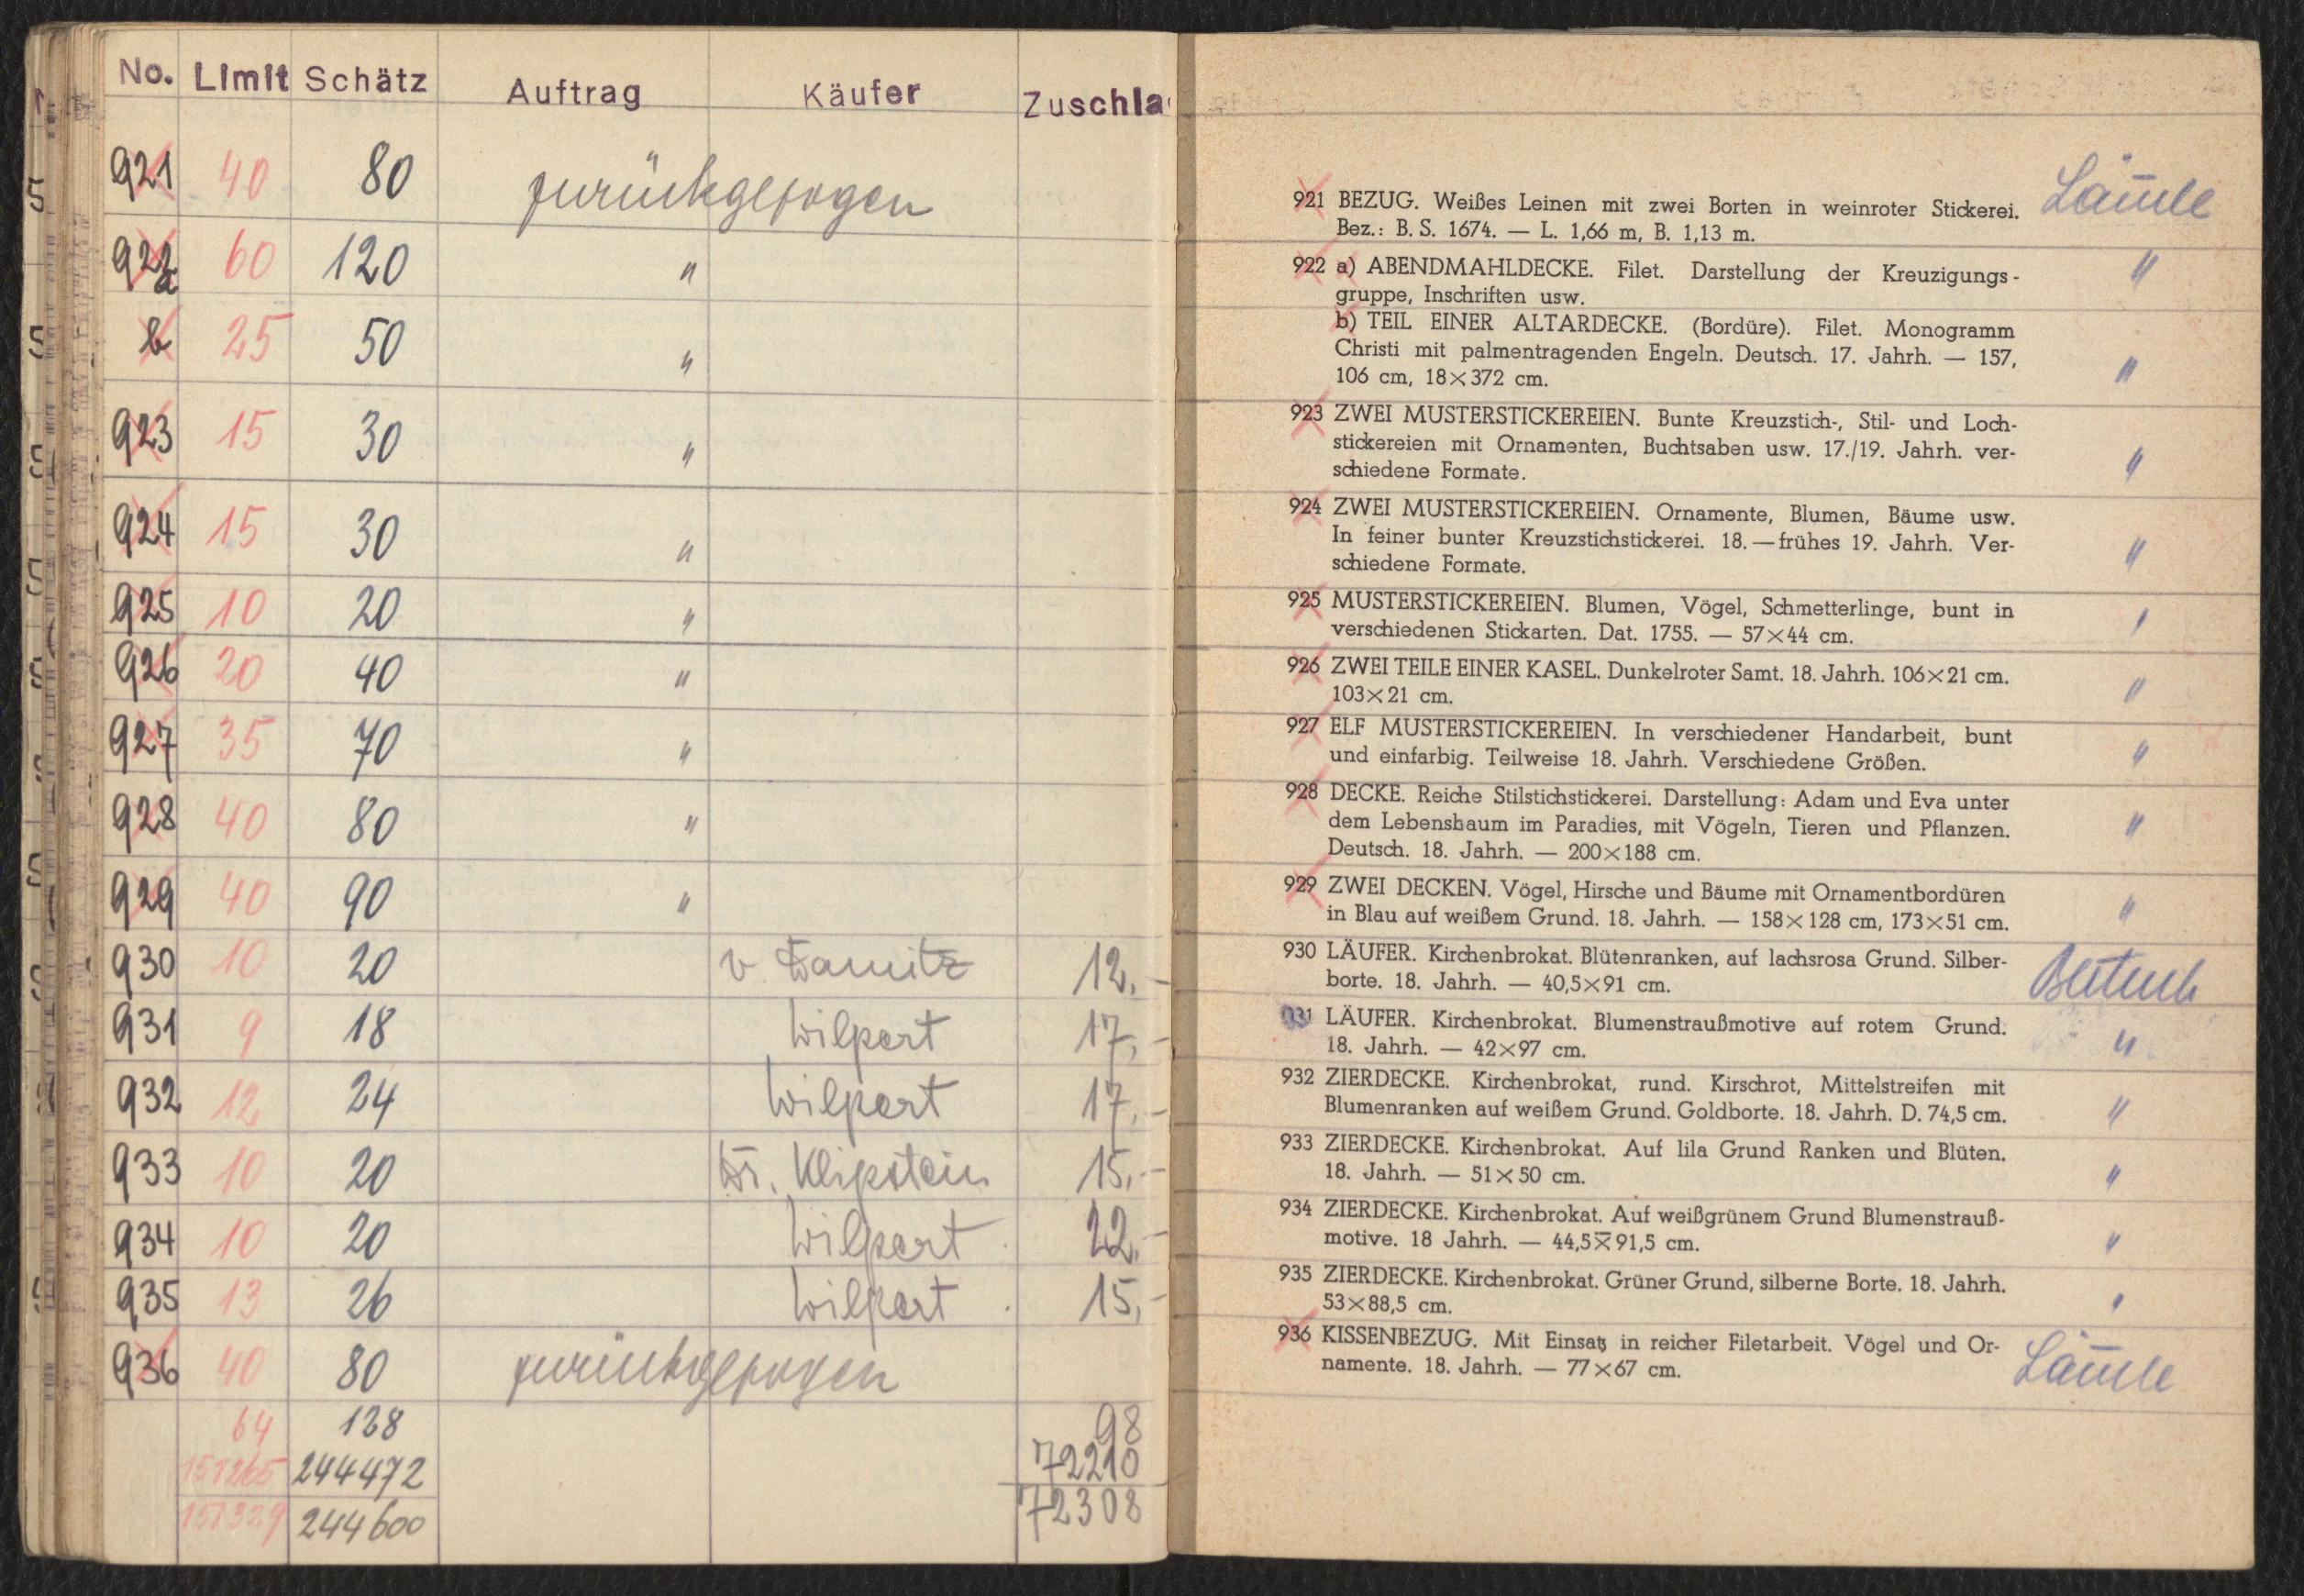 No. Limit Schätz Auftrag Käufer Zuschla
921 40 80 zurückgezogen
922 a 60 120 "
b 25 50 "
923 15 30 "
924 15 30 "
925 10 20 "
926 20 40 "
927 35 70 "
928 40 80 "
929 40 90 "
930 10 20 v. 12.-
931 9 18 Wilpert 17,-
932 12 24 Wilpert 17,-
933 10 20 Dr. Klipstein 15,-
934 10 20 Wilpert 22.-
935 13 26 Wilpert 15,-
936 40 80 zurückgezogen
64 128 98
157265 244472 72210
157329 244600 72308
921 BEZUG. Weißes Leinen mit zwei Borten in weinroter Stickerei. Lämle
Bez.: B. S. 1674. — L. 1,66 m, B. 1,13 m.
922 a) ABENDMAHLDECKE. Filet. Darstellung der Kreuzigungs- "
gruppe, Inschriften usw.
b) TEIL EINER ALTARDECKE. (Bordüre). Filet. Monogramm
Christi mit palmentragenden Engeln. Deutsch. 17. Jahrh. — 157, "
106 cm, 18×372 cm.
923 ZWEI MUSTERSTICKEREIEN. Bunte Kreuzstich-, Stil- und Loch-
stickereien mit Ornamenten, Buchtsaben usw. 17./19. Jahrh. ver- "
schiedene Formate.
924 ZWEI MUSTERSTICKEREIEN. Ornamente, Blumen, Bäume usw.
In feiner bunter Kreuzstichstickerei. 18. — frühes 19. Jahrh. Ver- "
schiedene Formate.
925 MUSTERSTICKEREIEN. Blumen, Vögel, Schmetterlinge, bunt in '
verschiedenen Stickarten. Dat. 1755. — 57×44 cm.
926 ZWEI TEILE EINER KASEL. Dunkelroter Samt. 18. Jahrh. 106×21 cm. "
103×21 cm.
927 ELF MUSTERSTICKEREIEN. In verschiedener Handarbeit, bunt "
und einfarbig. Teilweise 18. Jahrh. Verschiedene Größen.
928 DECKE. Reiche Stilstichstickerei. Darstellung: Adam und Eva unter
dem Lebensbaum im Paradies, mit Vögeln, Tieren und Pflanzen. "
Deutsch. 18. Jahrh. — 200×188 cm.
929 ZWEI DECKEN. Vögel, Hirsche und Bäume mit Ornamentbordüren
in Blau auf weißem Grund. 18. Jahrh. — 158×128 cm, 173×51 cm. "
930 LÄUFER. Kirchenbrokat. Blütenranken, auf lachsrosa Grund. Silber-
borte. 18. Jahrh. — 40,5×91 cm.
931 LÄUFER. Kirchenbrokat. Blumenstraußmotive auf rotem Grund. "
18. Jahrh. — 42×97 cm.
932 ZIERDECKE. Kirchenbrokat, rund. Kirschrot, Mittelstreifen mit
Blumenranken auf weißem Grund. Goldborte. 18. Jahrh. D. 74,5 cm. "
933 ZIERDECKE. Kirchenbrokat. Auf lila Grund Ranken und Blüten.
18. Jahrh. — 51×50 cm. "
934 ZIERDECKE. Kirchenbrokat. Auf weißgrünem Grund Blumenstrauß-
motive. 18 Jahrh. — 44,5×91,5 cm. "
935 ZIERDECKE. Kirchenbrokat. Grüner Grund, silberne Borte. 18. Jahrh.
53×88,5 cm. '
936 KISSENBEZUG. Mit Einsatz in reicher Filetarbeit. Vögel und Or- Lämle
namente. 18. Jahrh. — 77×67 cm.